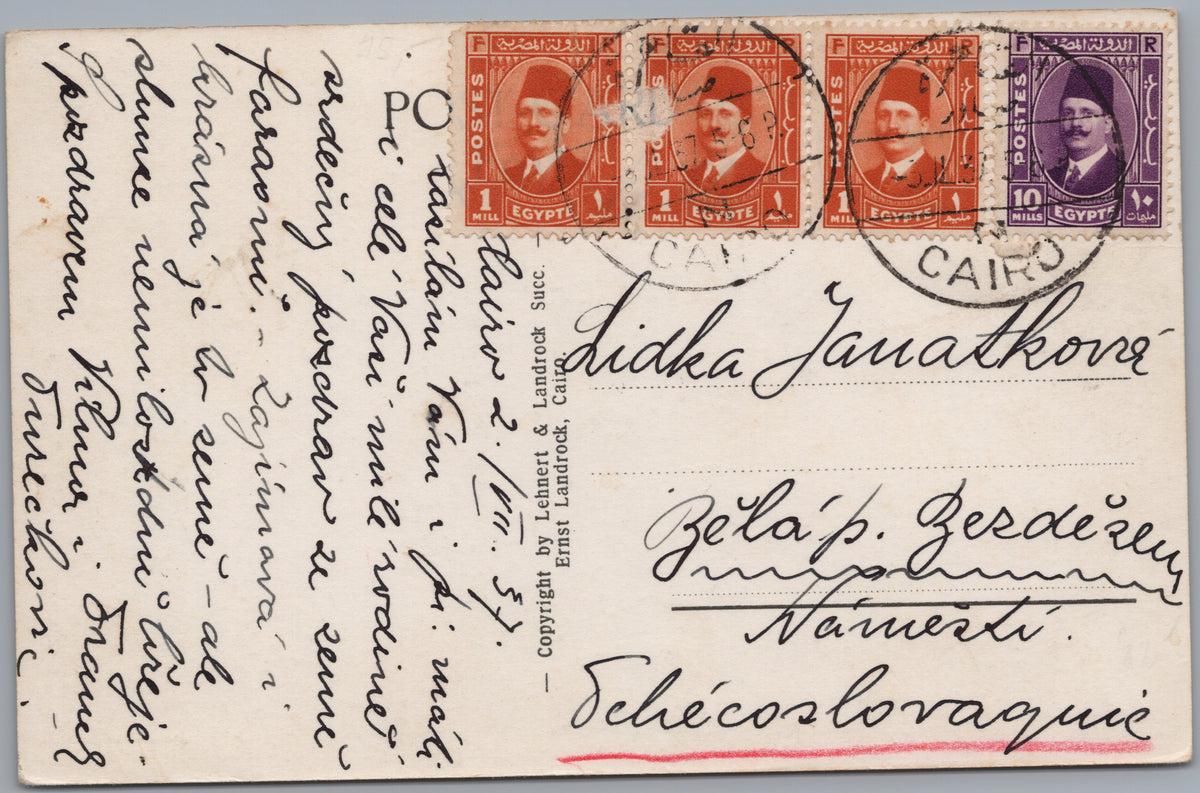 PO
F R
الدولة المصرية
POSTES
1 MILL
EGYPTE
١ مليم
F R
الدولة المصرية
POSTES
1 MILL
EGYPTE
١ مليم
F R
الدولة المصرية
POSTES
1 MILL
EGYPTE
١ مليم
F R
الدولة المصرية
POSTES
10 MILLS
EGYPTE
١٠ مليمات
القاهرة
CAIRO
القاهرة
CAIRO
Kairo 2./VII. 37.
zasílám Vám i pí. máti
i celé Vaší milé rodině
srdečný pozdrav ze země
faraonů. – Zajímavá i
krásná je to země – ale
slunce nemilosrdně
S pozdravem Vilma i
Turečkovi.
– Copyright by Lehnert & Landrock Succ.
Ernst Landrock, Cairo.
Lidka Janatková
Bělá p. Bezdězem
Náměstí.
Tchécoslovaquie